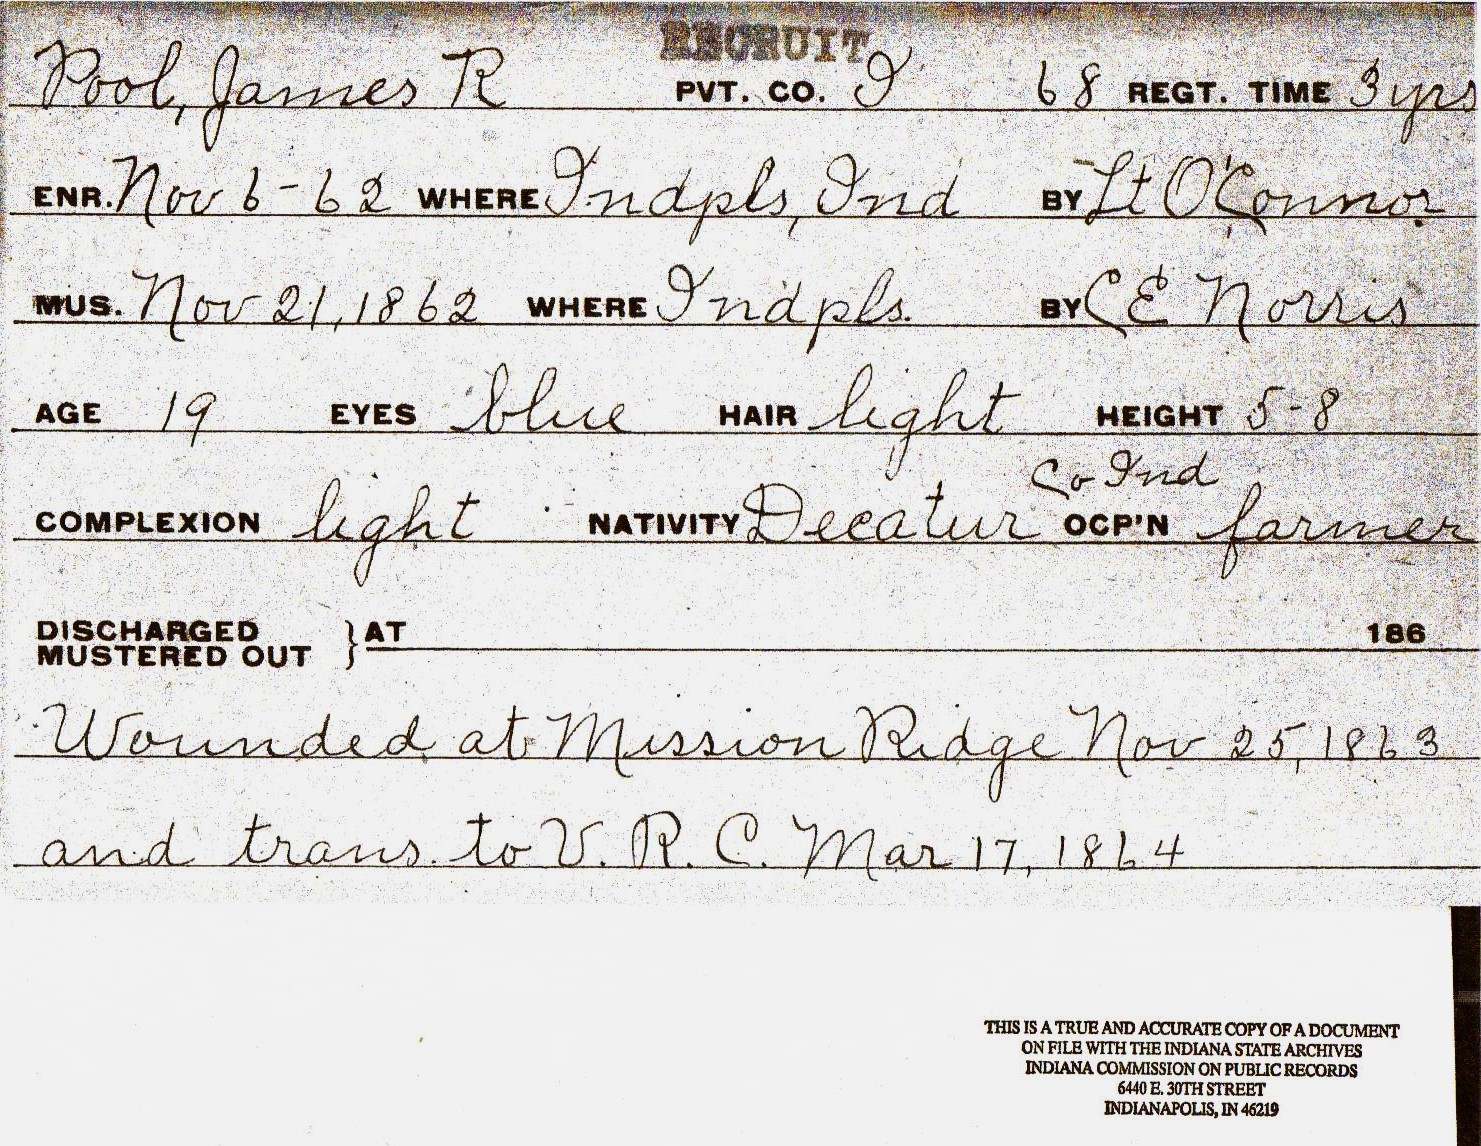 RECRUIT
Pool, James R PVT. CO. I 68 REGT. TIME 3 yrs
ENR. Nov 6-62 WHERE Indpls, Ind BY Lt O'Connor
MUS. Nov 21, 1862 WHERE Indpls. BY C E Norris
AGE 19 EYES blue HAIR light HEIGHT 5-8
Co Ind
COMPLEXION light NATIVITY Decatur OCP'N farmer
DISCHARGED
MUSTERED OUT } AT 186
Wounded at Mission Ridge Nov 25, 1863
and trans. to V. R. C. Mar 17, 1864
THIS IS A TRUE AND ACCURATE COPY OF A DOCUMENT
ON FILE WITH THE INDIANA STATE ARCHIVES
INDIANA COMMISSION ON PUBLIC RECORDS
6440 E. 30TH STREET
INDIANAPOLIS, IN 46219